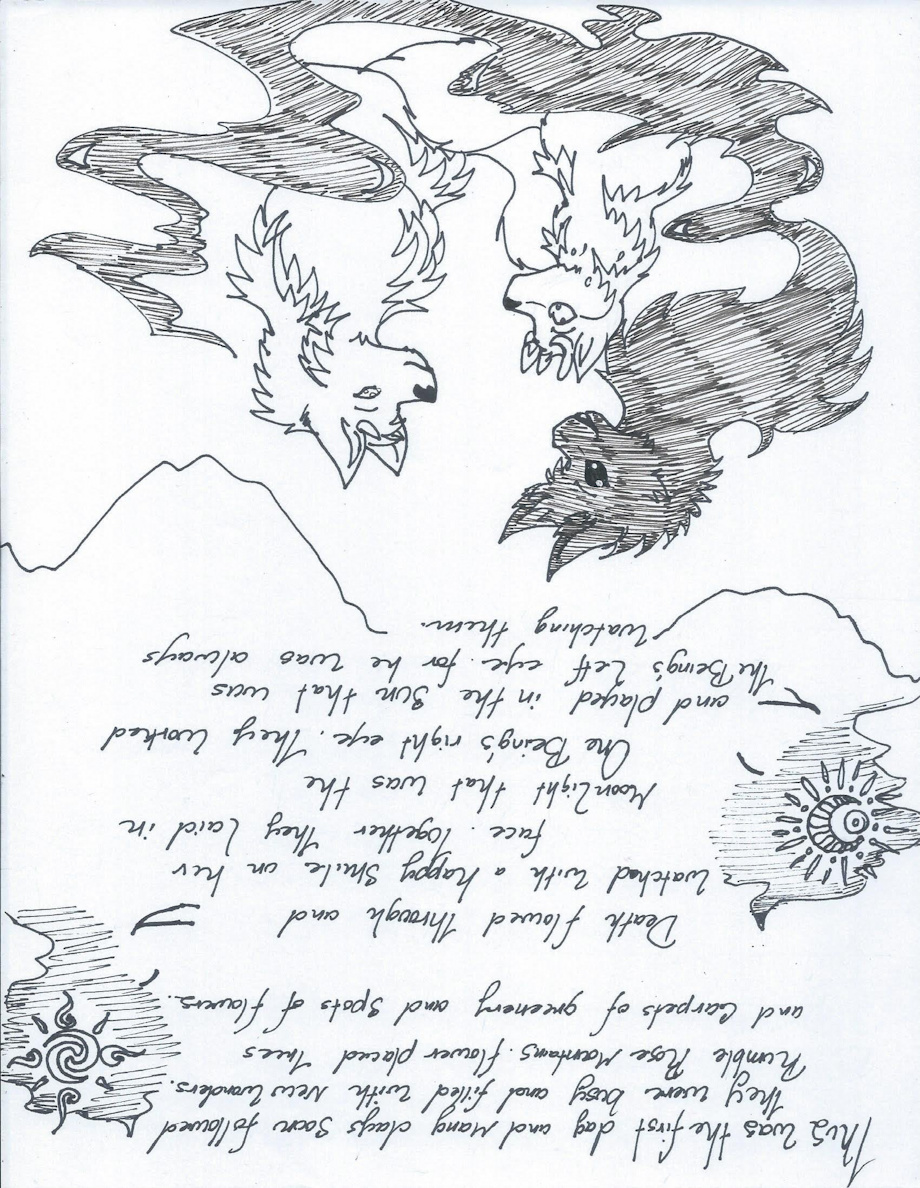 This was the first day and Many days Soon followed
They were busy and filled with New Wonders.
humble Rose Mantains. flower placed Trees
and Carpets of greenery and Spots of flowers.
Death flowed Through and
Watched With a happy Smile on her
face. Together They Laid in
Moon Light that was the
One Being's right eye. They Worked
and played in the Sun that was
The Being's Left eye. for he was always
Watching them.